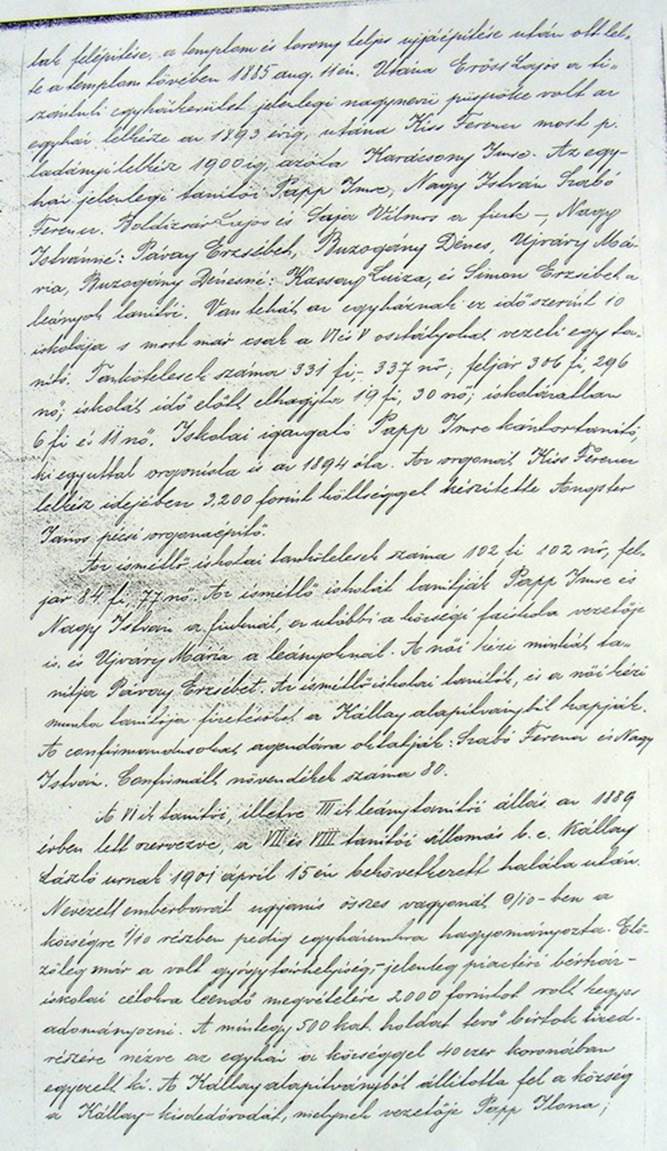 tak felépitése, a templom és torony teljes ujjáépitése után ott let-
te a templom tövében 1885 aug. 11 én. Utána Erőss Lajos a ti-
szántuli egyházkerület jelenlegi nagynevü püspöke volt az
egyház lelkésze az 1893 évig, utána Kiss Ferenc most p.
ladányi lelkész 1900 ig, azóta Karácsony Imre. Az egy-
ház jelenlegi tanitói Papp Imre, Nagy István Szabó
Ferenc. Boldizsár Lajos és Gaja Vilmos a fiuk – Nagy
Istvánné: Pávay Erzsébet, Buzogány Dénes, Ujváry Má-
ria, Buzogány Dénesné: Kassay Luiza, és Simon Erzsébet a
leányok tanitói. Van tehát az egyháznak ez idő szerint 10
iskolája s most már csak a VI és V osztályokat vezeti egy ta-
nitó. Tankötelesek száma 331 fi, – 337 nő; feljár 306 fi, 296
nő; iskolát idő előtt elhagyta 19 fi, 30 nő; iskolázatlan
6 fi és 11 nő. Iskolai igazgató Papp Imre kántortanitó,
ki egyuttal orgonista is az 1894 óta. Az orgonát Kiss Ferenc
lelkész idejében 3,200 forint költséggel készitette Angster
János pécsi orgonaépitő.
Az ismétlő iskolai tankötelesek száma 102 fi 102 nő, fel-
jár 84 fi, 77 nő. Az ismétlő iskolát tanitják Papp Imre és
Nagy István a fiuknál, ez utóbbi a községi faiskola vezetője
is, és Ujváry Mária a leányoknál. A női kézi munkát ta-
nitja Pávay Erzsébet. Az ismétlő iskolai tanitók, és a női kézi
munka tanitója fizetésöket a Kállay alapitványból kapják.
A confirmandusokat agendára oktatják: Szabó Ferenc és Nagy
István. Confirmált növendékek száma 80.
A VI ik tanitói, illetve III ik leánytanitói állás az 1889
évben lett szervezve, a VII és VIII tanitói állomás b. e. Kállay
László urnak 1901 april 15 én bekövetkezett halála után.
Nevezett emberbarát ugyanis összes vagyonát 9/10-ben a
községre 1/10 részben pedig egyházunkra hagyományozta. Elő-
zőleg már a volt gyógytárhelyiség, – jelenleg piactéri bérház –
iskolai célokra leendő megvételére 2000 forintot volt kegyes
adományozni. A mintegy 500 kat. holdat tevő birtok tized-
részére nézve az egyház a községgel 40 ezer koronában
egyezett ki. A Kállay alapitványból állitotta fel a község
a Kállay-kisdedóvodát, melynek vezetője Papp Ilona;